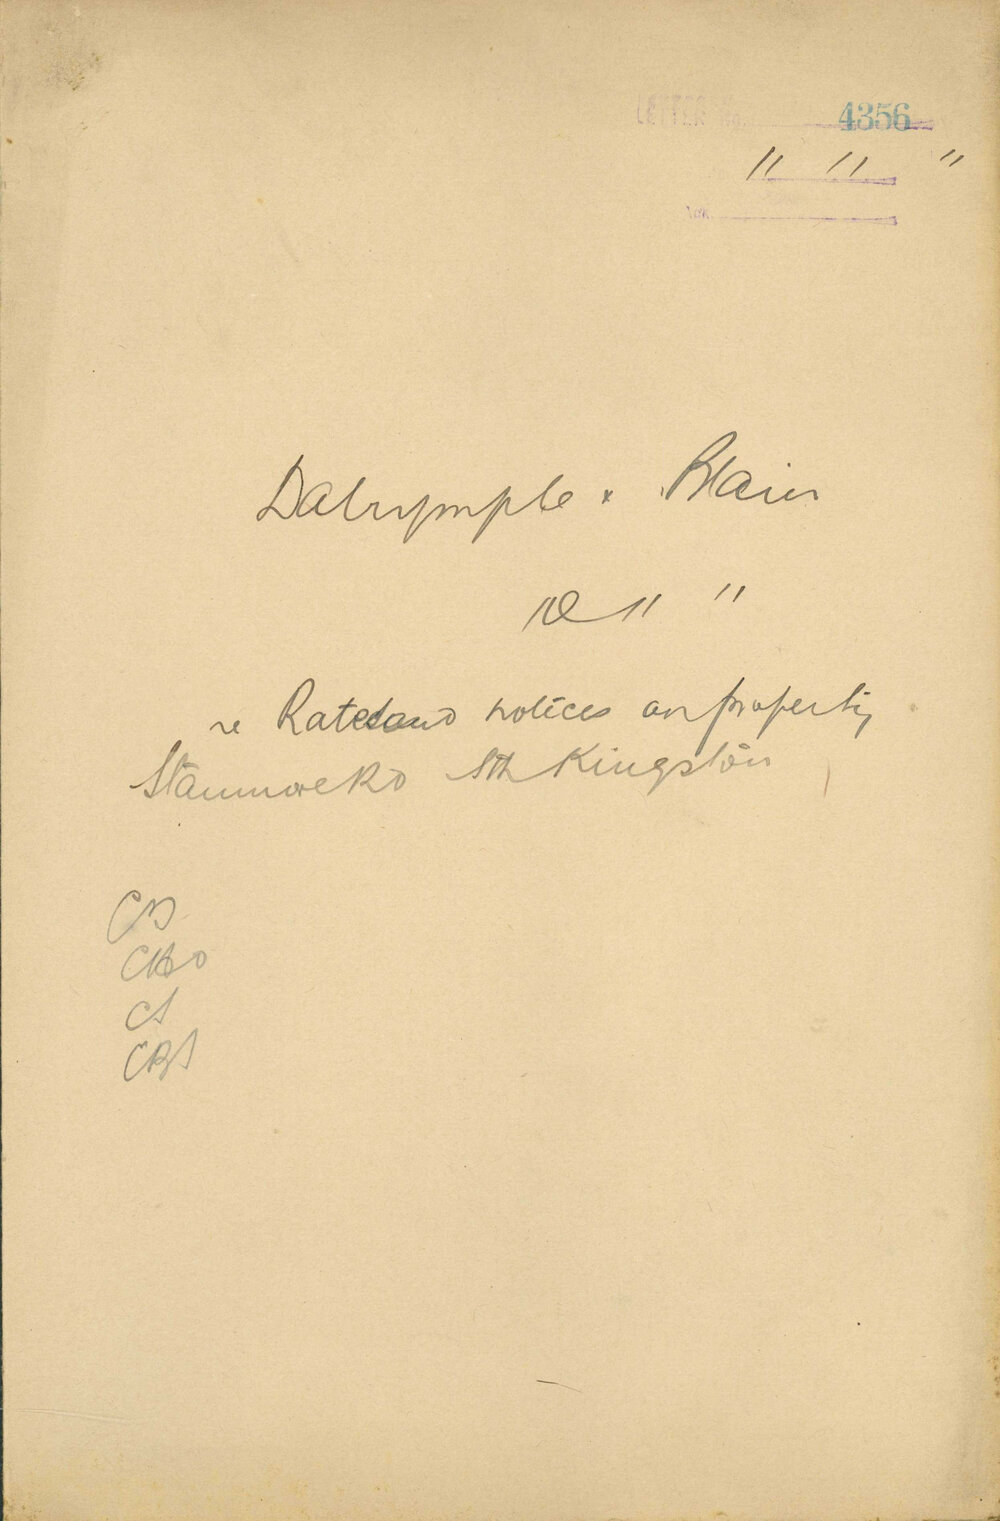 LETTER No. 4356
" " "
Dalrymple & Blain
10 " "
re Rates and notices on property
Stanmore Rd Sth Kingston
CS
CS
CBS